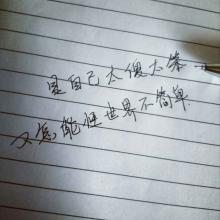 是自己太傻太笨
又怎能怪世界不简单